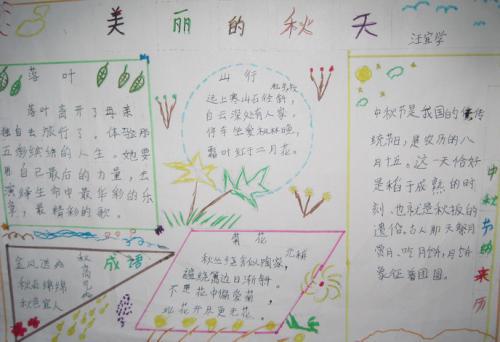 美丽的秋天
汪宜学
落叶
落叶离开了母亲,
独自去旅行了。体验那
五彩缤纷的人生。她要
用自己最后的力量,去
演绎生命中最华彩的乐
章,最精彩的歌。
山行
杜牧
远上寒山石径斜,
白云深处有人家。
停车坐爱枫林晚,
霜叶红于二月花。
中秋节的来历
中秋节是我国的传
统节日,是农历的八
月十五。这一天恰好
是稻子成熟的时
刻,也就是秋报的
遗俗。古人那天祭月
赏月、吃月饼,月饼
象征着团圆。
成语
金风送爽
秋雨绵绵
秋色宜人
秋高气爽
菊花
元稹
秋丛绕舍似陶家,
遍绕篱边日渐斜。
不是花中偏爱菊,
此花开尽更无花。